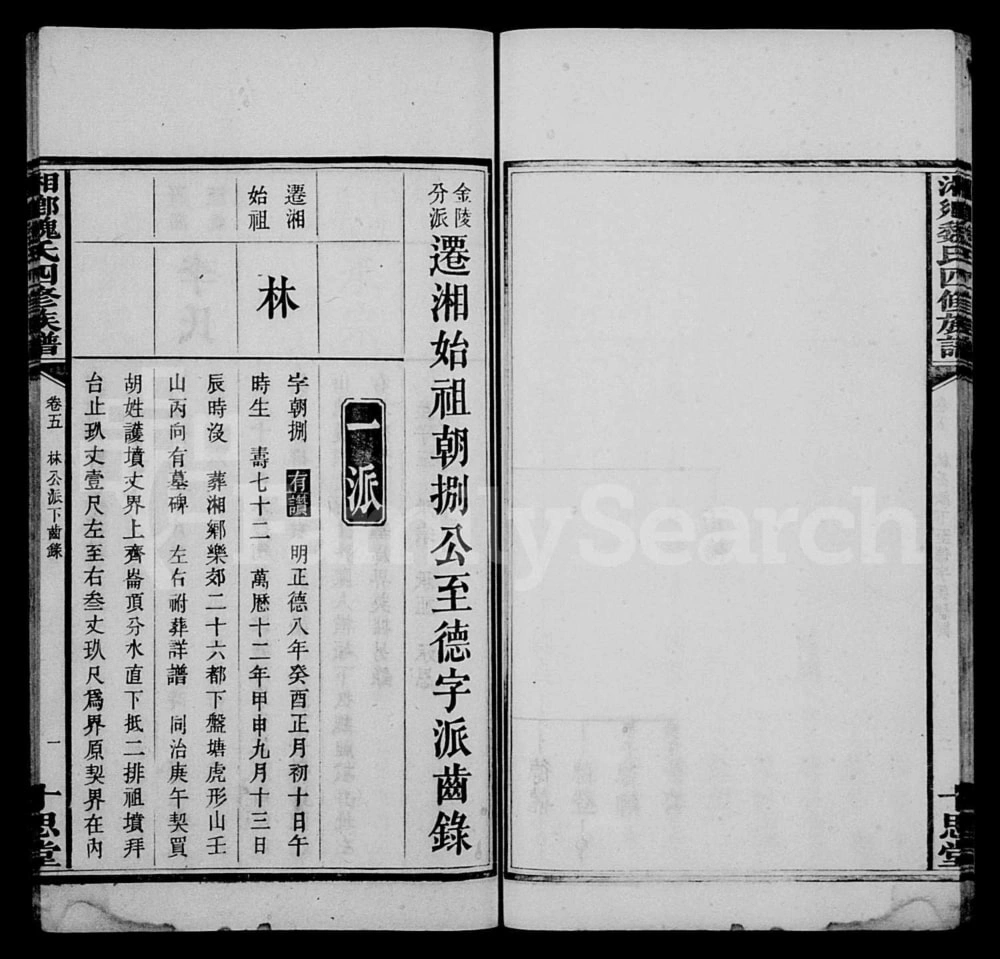 湘鄉魏氏四修族譜
十思堂
金陵
分派
遷湘始祖朝捌公至德字派齒錄
一派
遷湘
始祖
林
字朝捌 有讚 明正德八年癸酉正月初十日午
時生 壽七十二 萬曆十二年甲申九月十三日
辰時沒 葬湘鄉樂郊二十六都下盤塘虎形山壬
山丙向有墓碑 左右祔葬詳譜 同治庚午契買
胡姓護墳丈界上齊崙頂分水直下抵二排祖墳拜
台止玖丈壹尺左至右叁丈玖尺爲界原契界在內
湘鄉魏氏四修族譜
卷五 林公派下齒錄
一
十思堂
FamilySearch